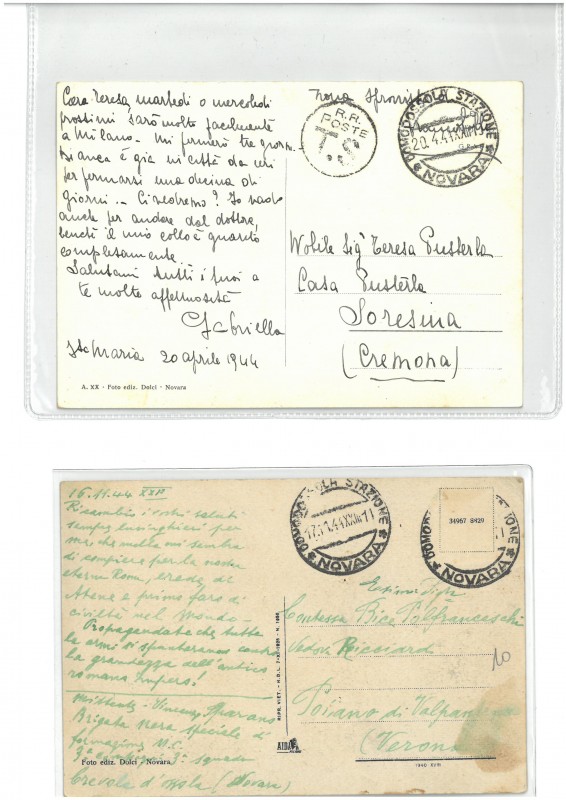 Cara Teresa, martedì o mercoledì
prossimi sarò molto facilmente
a Milano. Mi fermerò tre giorni
Bianca è già in città da ieri
per fermarsi una decina di
giorni -- Ci vedremo? Io vado
anche per andare dal dottore,
benché il mio collo è guarito
completamente.
Salutami tutti i tuoi a
te molte affettuosità
Gabriella
Sta Maria 20 aprile 1944
A. XX - Foto ediz. Dolci - Novara
R.R. POSTE
T.S
DOMODOSSOLA STAZIONE
20.4.44 XXII 11
NOVARA
Nobile Sig. Teresa Pusterla
Casa Pusterla
Soresina
(Cremona)
16.11.44 XXIII
Ricambio i vostri saluti
sempre lusinghieri per
me, che nulla mi sembra
di compiere per la nostra
eterna Roma, erede di
Atene e primo faro di
civiltà nel mondo -
Propagandate che tutte
le armi si spunteranno contro
la grandezza dell'antico
romano Impero!
Vincenzo
Brigata nera speciale d'
formazione M.C.
Squadra
Crevola d'Ossola (Novara)
Foto ediz. Dolci - Novara
DOMODOSSOLA STAZIONE
17.11.44 XXIII 11
NOVARA
34967 8420
NOVARA
Contessa Bice
Vedova Ricciardi
Poiano di Valpantena
(Verona)
10
RIPR. VIET. - N.D.L.
AIDA
1940 XVIII